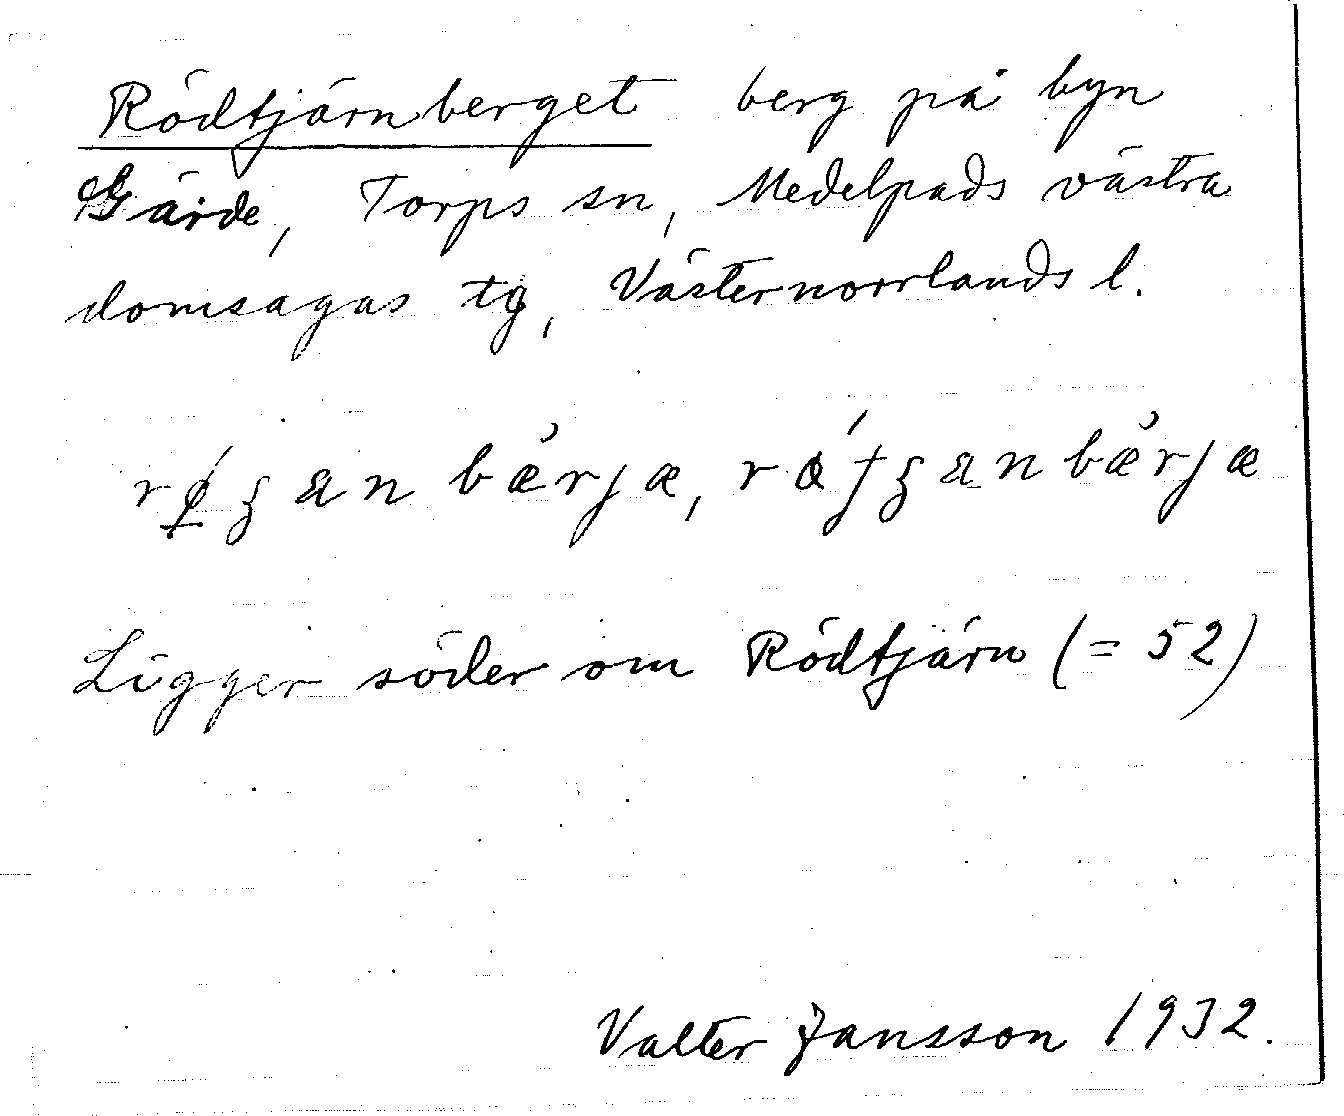 Rödtjärnberget berg på byn
Gärde, Torps sn, Medelpads västra
domsagas tg, Västernorrlands l.
Ligger söder om Rödtjärn (= 52)
Valter Jansson 1932.